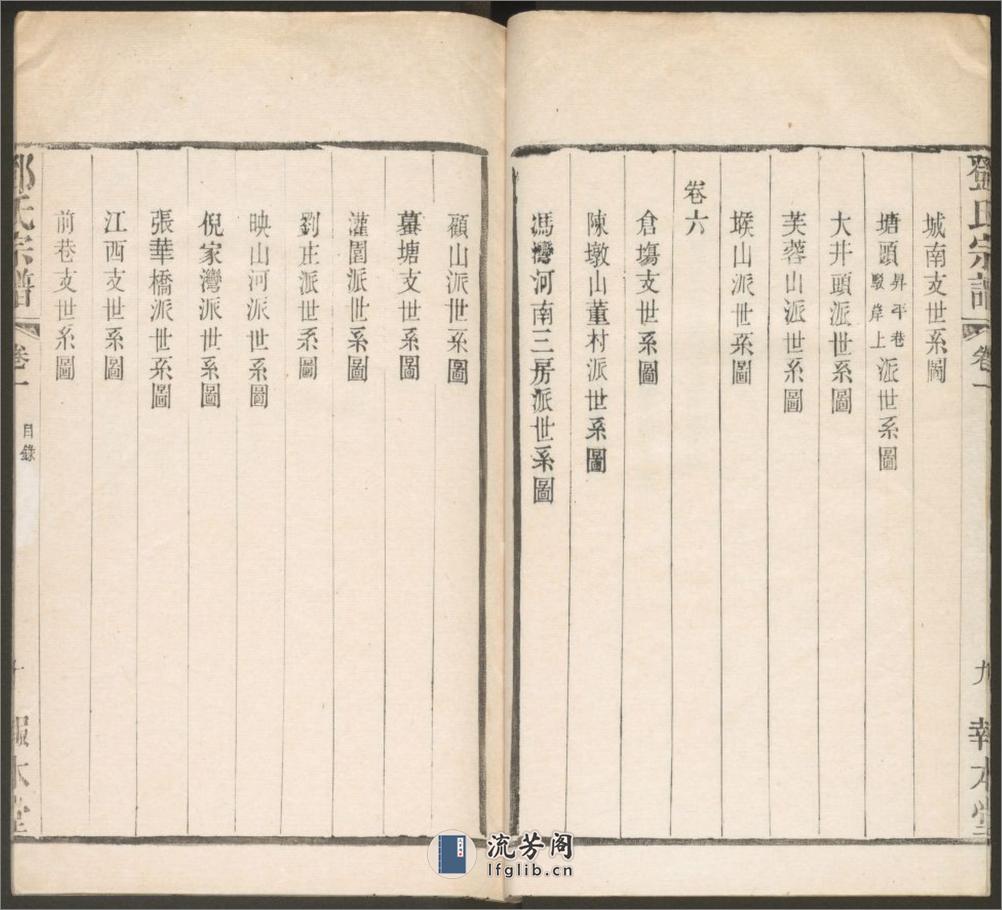 鄧氏宗譜 卷一 九 報本堂
城南支世系圖
塘頭昇平巷駁岸上派世系圖
大井頭派世系圖
芙蓉山派世系圖
堠山派世系圖
卷六
倉塲支世系圖
陳墩山董村派世系圖
馮灣河南三房派世系圖
顧山派世系圖
蠤塘支世系圖
灌園派世系圖
劉庄派世系圖
映山河派世系圖
倪家灣派世系圖
張華橋派世系圖
江西支世系圖
前巷支世系圖
鄧氏宗譜 卷一 目錄 十 報本堂
流芳阁
lfglib.cn